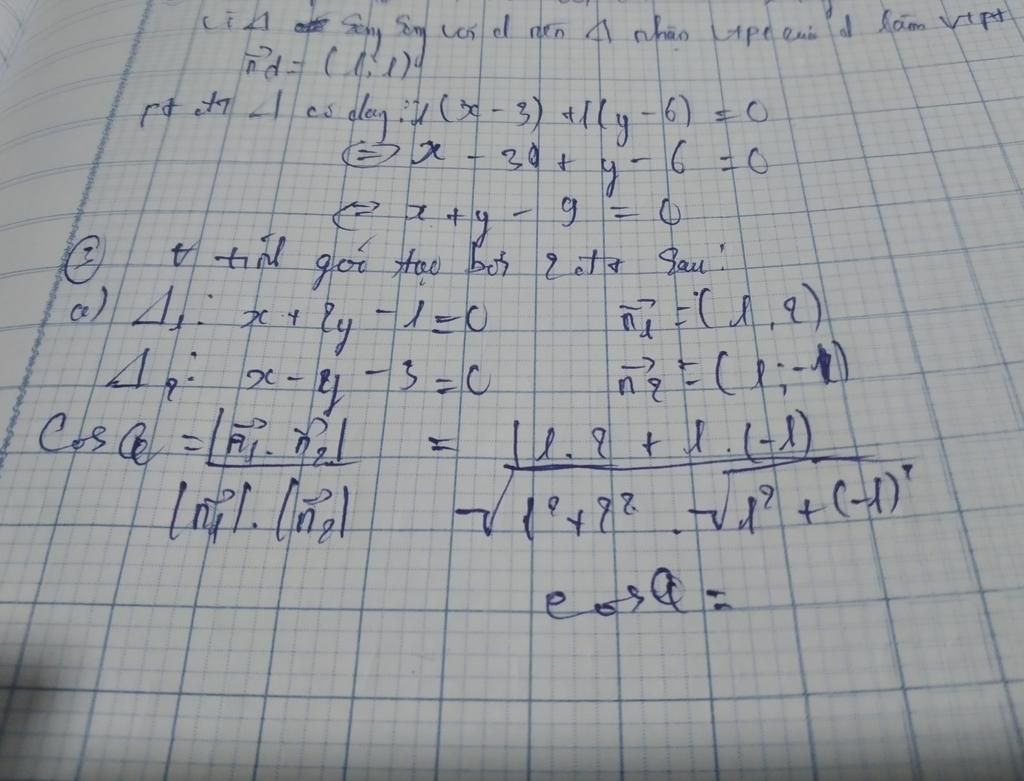 vì Δ song song với d nên Δ nhận vtpt của d làm vtpt
n⃗d = (1; 1)
pt đt Δ có dạng: 1(x - 3) + 1(y - 6) = 0
⇔ x - 3 + y - 6 = 0
⇔ x + y - 9 = 0
② tính góc tạo bởi 2 đt sau:
a) Δ₁: x + 2y - 1 = 0 n⃗₁ = (1, 2)
Δ₂: x - y - 3 = 0 n⃗₂ = (1; -1)
Cos α = |n⃗₁ . n⃗₂| / |n⃗₁| . |n⃗₂| = |1. 2 + 1 . (-1) / √1² + 2² . √1² + (-1)²
cos α =